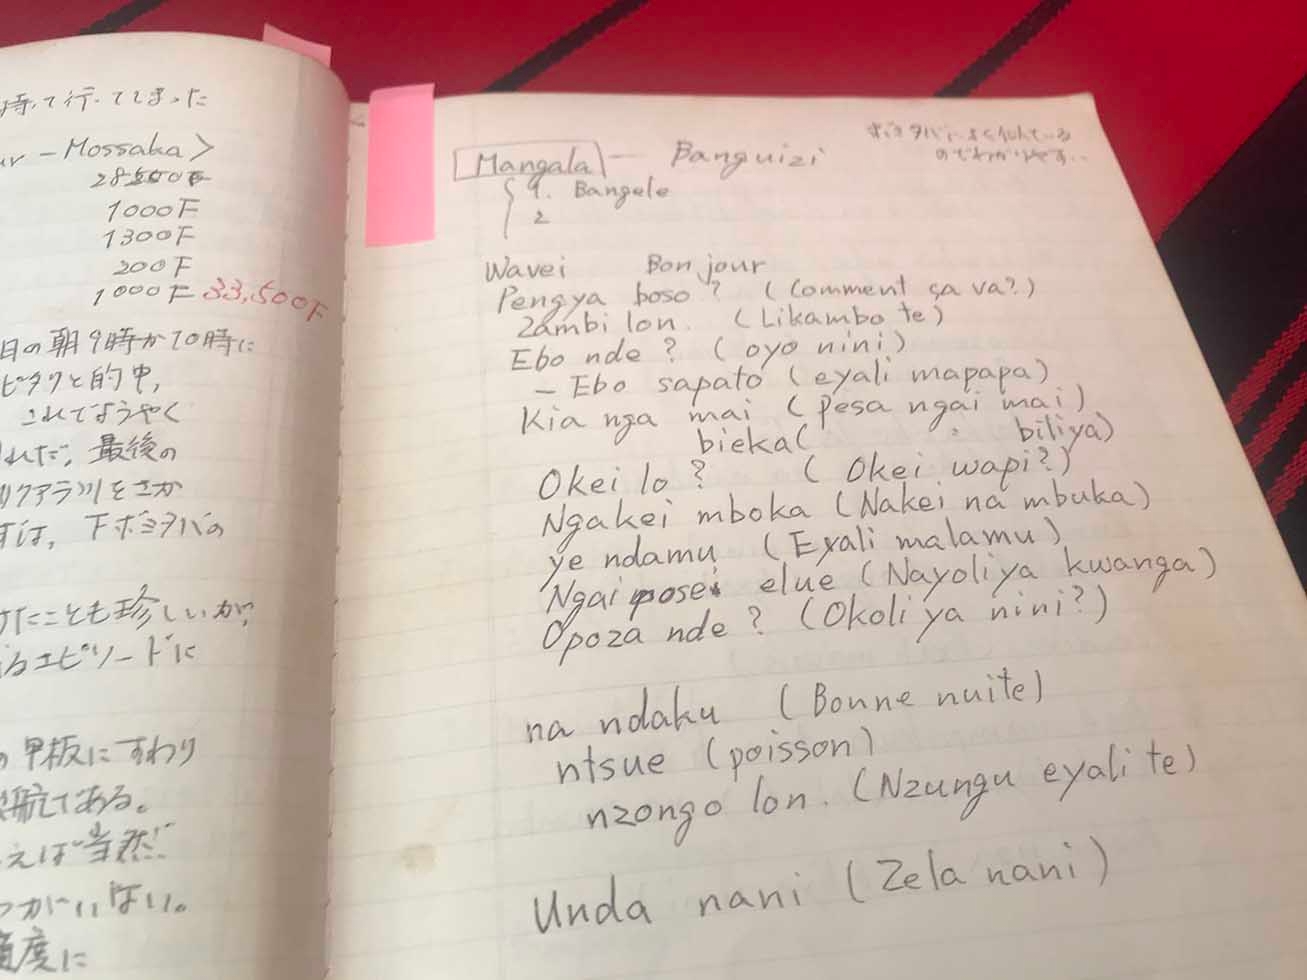 持って行ってしまった
ur - Mossaka>
28500F
1000F
1300F
200F
1000F 33,500F
日の朝9時か10時に
ピタリと的中,
これでようやく
れだ,最後の
リクアラ川をさか
ずは,下ボミタバの
けたことも珍しいが,
るエピソードに
の甲板にすわり
航してある。
えば当然!
つがいはない。
適度に
Mangala — Banguizi
ボミタバによく似ている
のでわかりやすい
1. Bangele
2
Wavei Bonjour
Pengya boso? (Comment ça va?)
Zambi lon. (Likambo te)
Ebo nde? (oyo nini)
- Ebo sapato (eyali mapapa)
Kia nga mai (pesa ngai mai)
bieka ( biliya)
Okei lo? (Okei wapi?)
Ngakei mboka (Nakei na mbuka)
ye ndamu (Eyali malamu)
Ngai posei elue (Nayoliya kwanga)
Opoza nde? (Okoliya nini?)
na ndaku (Bonne nuite)
ntsue (poisson)
nzongo lon. (Nzungu eyali te)
Unda nani (Zela nani)